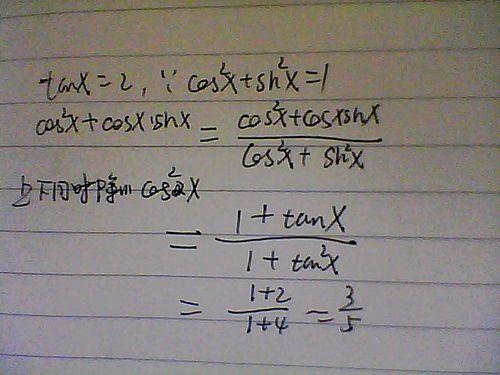 tanx=2, ∵ cos²x+sin²x=1
cos²x+cosx·sinx = (cos²x+cosxsinx)/(cos²x+sin²x)
上下同时除以 cos²x
= (1+tanx)/(1+tan²x)
= (1+2)/(1+4) = 3/5